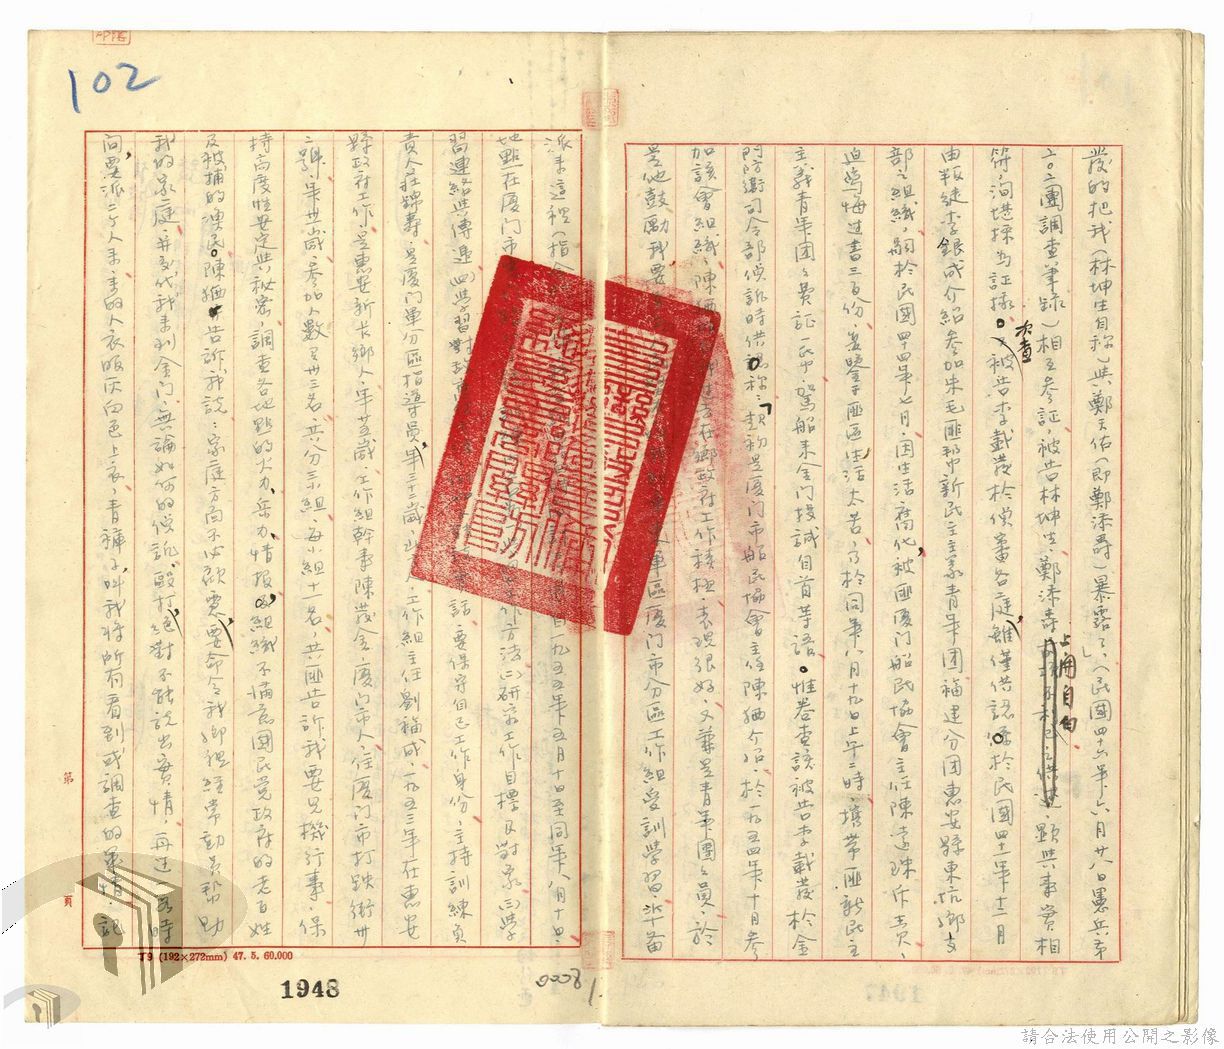 發的把我(林坤生自稱)與鄭天佑(即鄭添壽)暴露了」(民國四十六年六月廿八日憲兵第
二〇二團調查筆錄)相互參証,被告林坤生、鄭添壽上開自白,顯與事實相
符,洵堪採為証據。次查被告李載發於偵審各庭,雖僅供認:於民國四十一年十二月
由叛徒李銀成介紹參加朱毛匪幫中新民主主義青年團福建分團惠安縣東坑鄉支
部之組織,嗣於民國四十四年七月,因生活腐化,被匪厦门船民協會主任陳遠珠斥責、
迫寫悔过書三百份,並鑒于匪區生活太苦,乃於同年八月十九日上午二時,携带匪新民主
主義青年团團費証一帋,駕船来金门投誠自首等語。惟卷查該被告李載發於金
门防衛司令部偵訊時供認稱:「起初是厦门市船民協會主任陳猶介紹,於一九五四年十月參
加該會組織,陳猶 过去在鄉政府工作積極,表现很好,又兼是青年團團員,於
是他鼓勵我要 軍區厦门市分區工作組受訓學習,於十苗
派来這裡(指金 自一九五五年五月十日至同年八月十日,
地點在厦门市 工作方法(二)研究工作目標及對象(三)學
習連絡與傳遞(四)學習 話,要保守自己工作身份,主持訓練負
責人莊錦壽,是厦门軍分區指導員,年三十二歲,山 人,工作組主任劉福成,一九五三年在惠安
縣政府工作,是惠安新衣鄉人,年廿五歲,工作組幹事陳發金,厦门市人,住厦门市打鉄街卅
號,年卅歲,參加人數是卅三名,共分三組,每小組十一名,共匪告訴我要見機行事,保
持高度性安定與秘密,調查各地點的火力、兵力、情报及組織不滿意國民党政府的老百姓
及被捕的漁民。陳猶告訴我說:家庭方面不必顧慮,要命令我鄉組經常動員帮助
我的家庭,并交代我来到金门,無論如何的偵訊、毆打,絕對不能說出實情,再过一段時
间要派二个人来,来的人衣服灰白色上衣、青褲子,叫我將所有看到或調查的軍情,記
102
第 頁
T9 (192×272mm) 47. 5. 60.000
1948
0008
請合法使用公開之影像